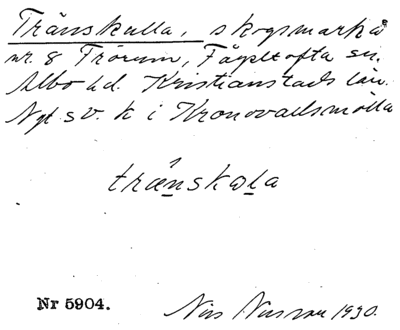 Tränskulla, skogsmark å
nr. 8 Trörum, Fågeltofta sn.
Albo hd. Kristianstads län.
Ngt sv. K i Kronovallsmölla
trænskɷla
Nr 5904.
Nils 1930.